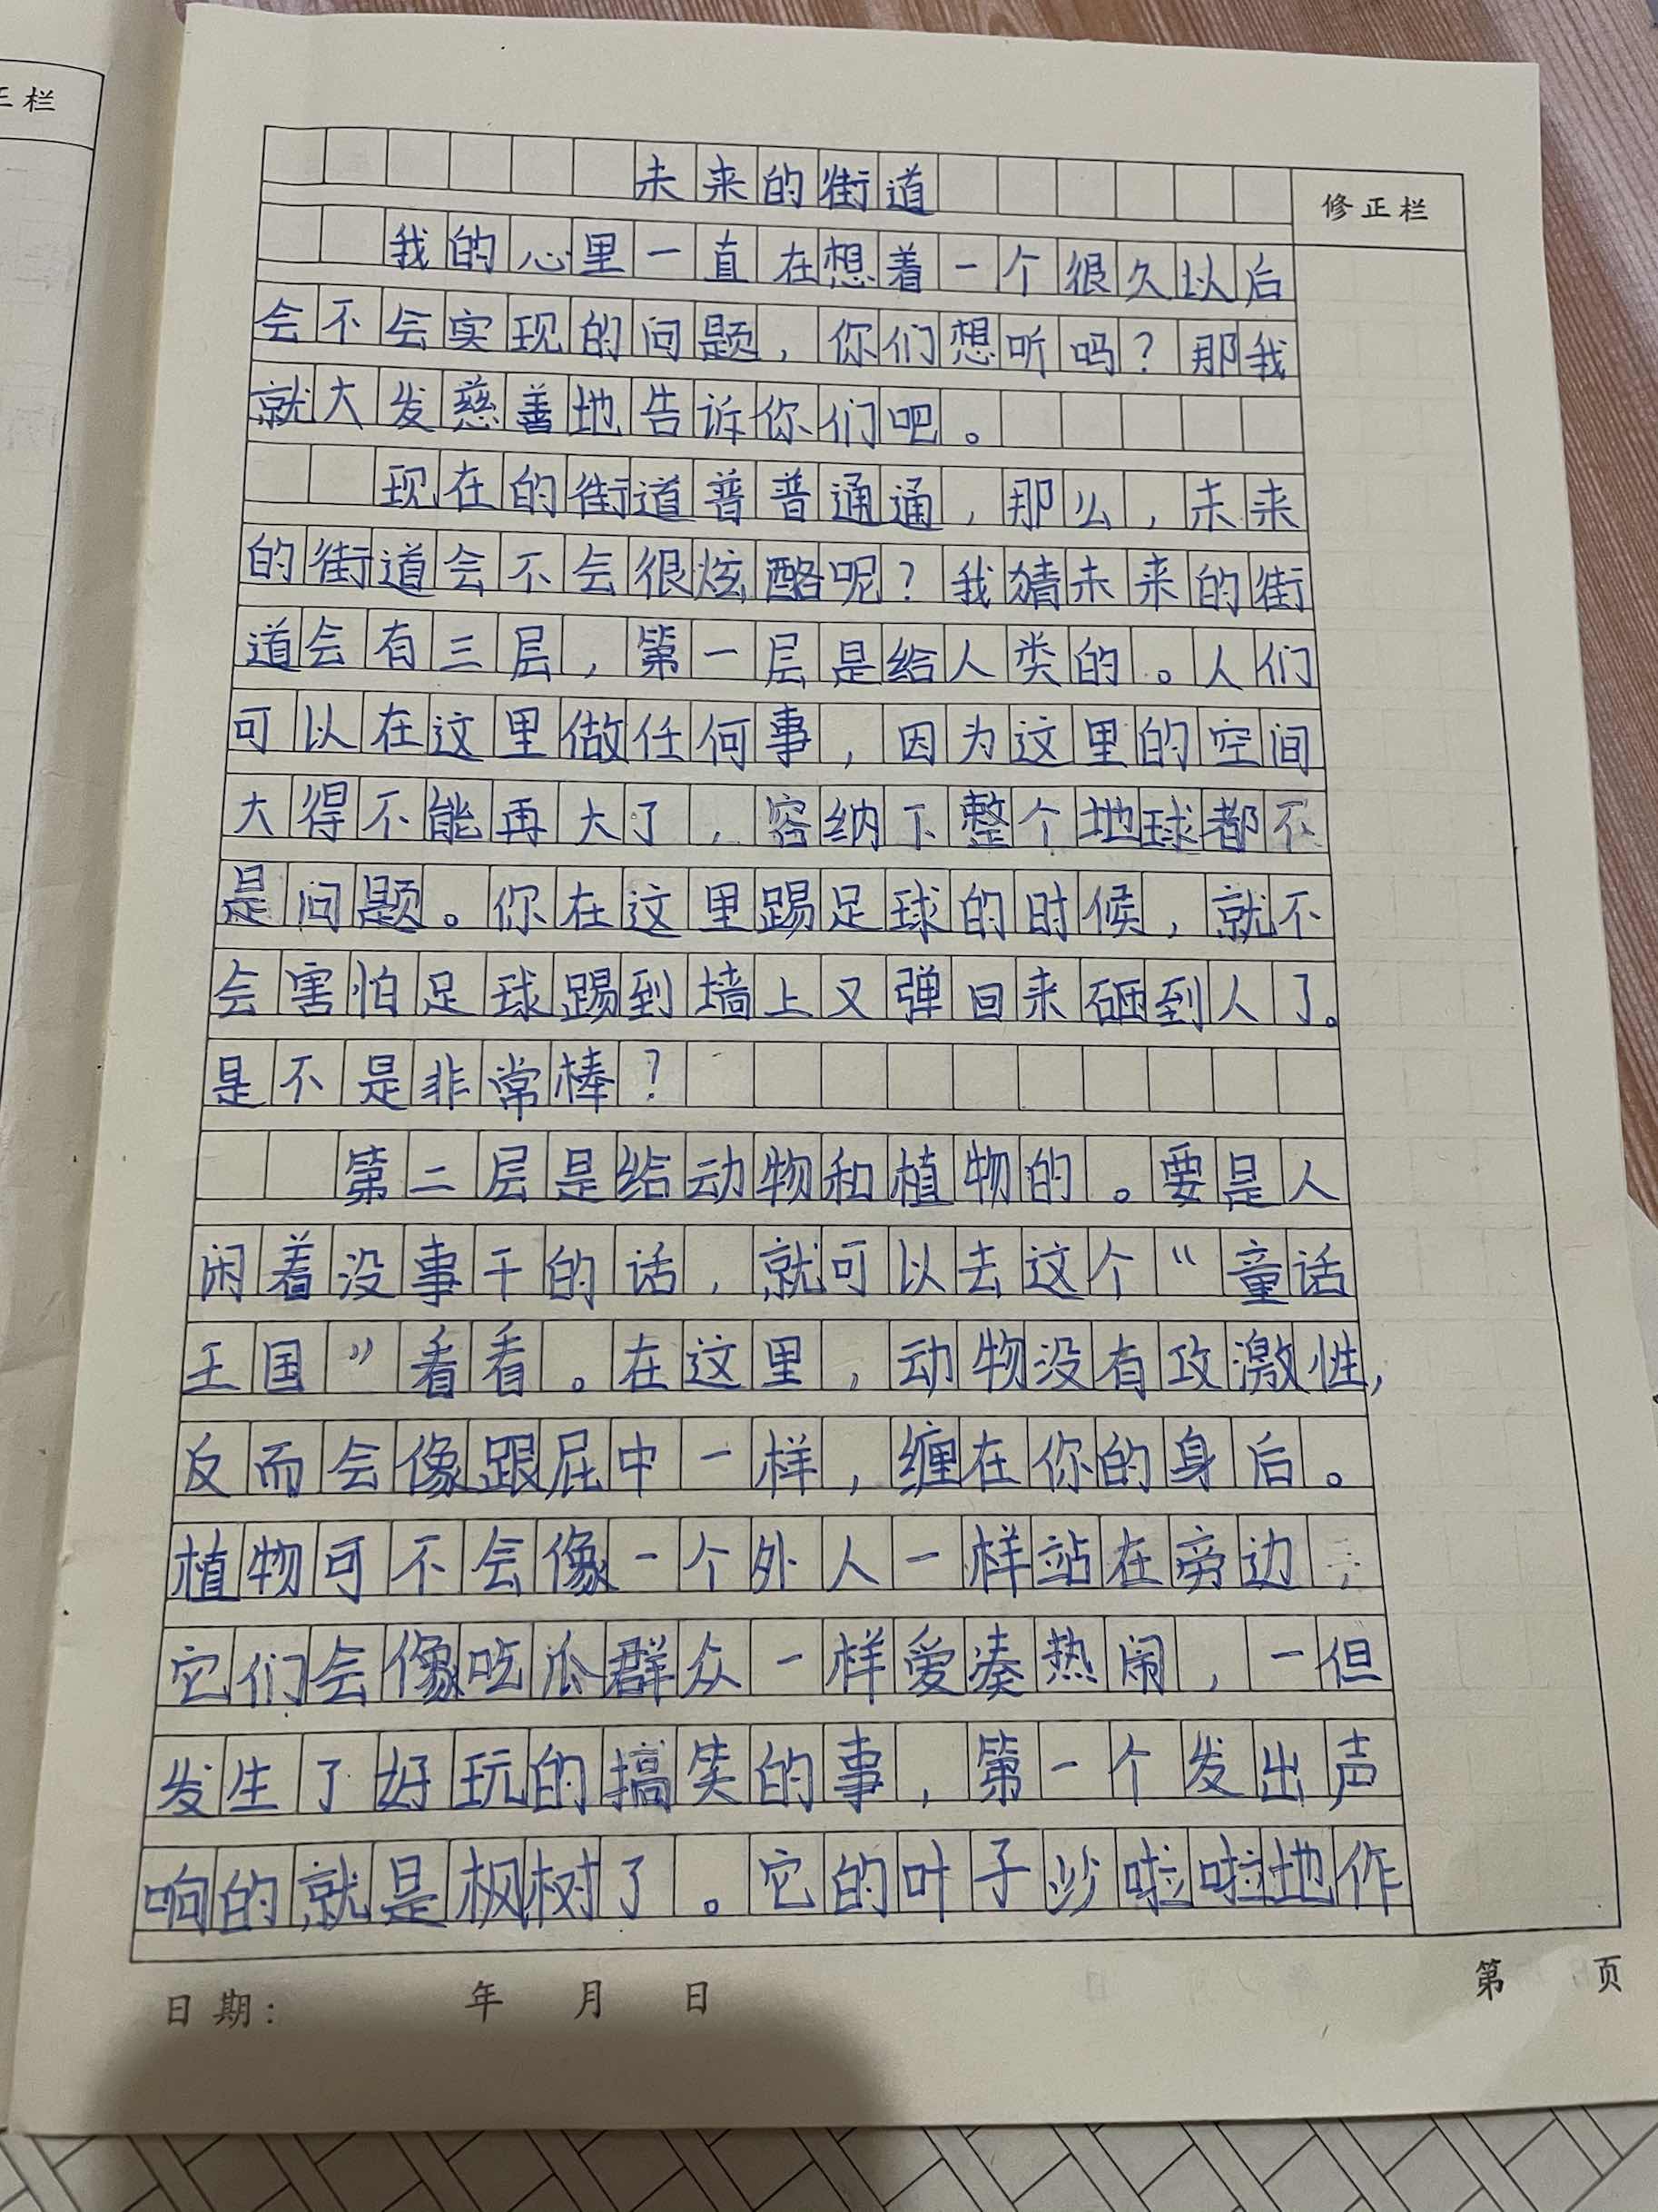 正栏
未来的街道
修正栏
我的心里一直在想着一个很久以后
会不会实现的问题，你们想听吗？那我
就大发慈善地告诉你们吧。
现在的街道普普通通，那么，未来
的街道会不会很炫酷呢？我猜未来的街
道会有三层，第一层是给人类的。人们
可以在这里做任何事，因为这里的空间
大得不能再大了，容纳下整个地球都不
是问题。你在这里踢足球的时候，就不
会害怕足球踢到墙上又弹回来砸到人了。
是不是非常棒？
第二层是给动物和植物的。要是人
闲着没事干的话，就可以去这个“童话
王国”看看。在这里，动物没有攻激性，
反而会像跟屁中一样，缠在你的身后。
植物可不会像一个外人一样站在旁边；
它们会像吃瓜群众一样爱凑热闹，一但
发生了好玩的搞笑的事，第一个发出声
响的就是枫树了。它的叶子沙啦啦地作
日期： 年 月 日
第 页